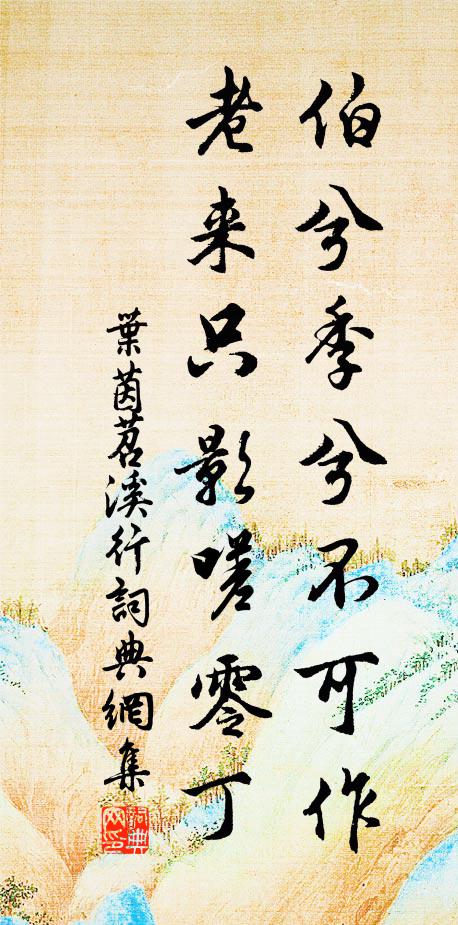 伯兮季兮不可作
老来只影嗟零丁
葉茵苕溪行詞典網集
詞典网印